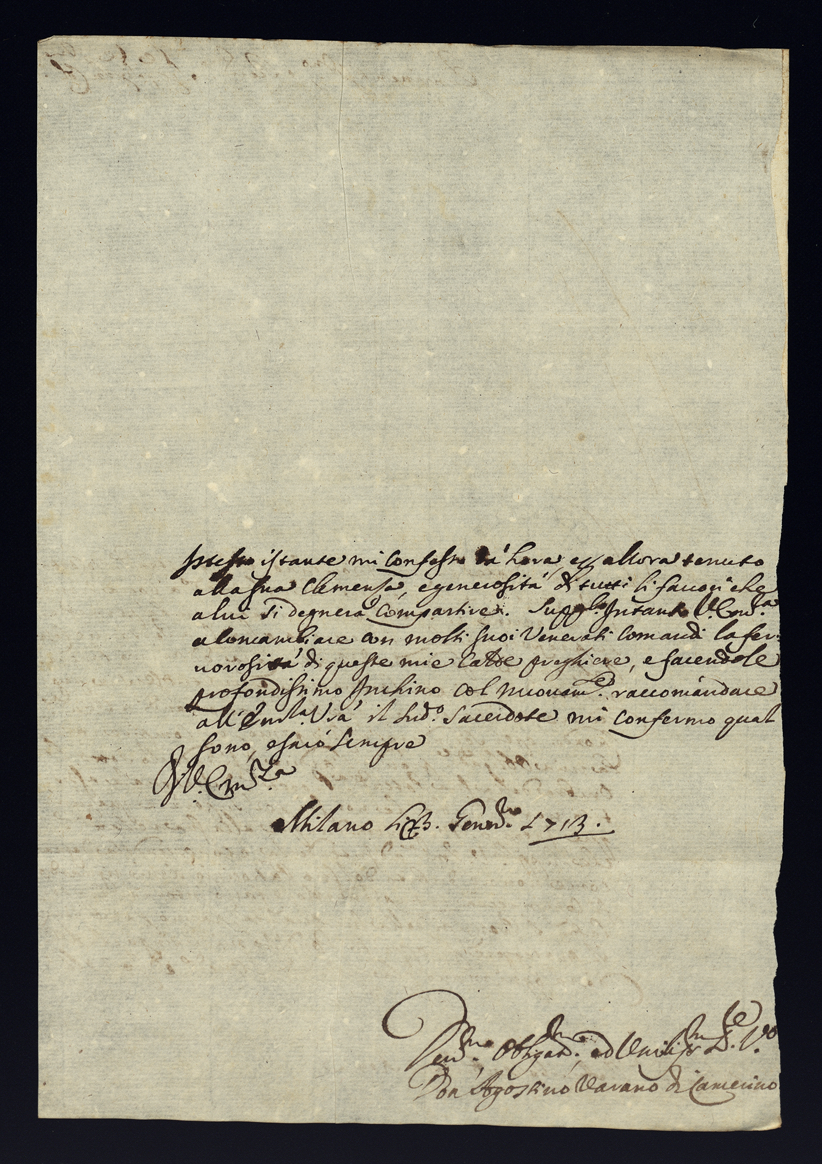 stesso istante mi confesso da' hora, e p allora tenuto
alla sua Clemenza, e generosità di tutti li favori che
a lui si degnerà compartire. Suppl.do Intanto V.Em.za
a loncambiare con molti suoi Venerati Comandi la fer-
vorosità di queste mie calde preghiere, e facendole
profondissimo Inchino col nuovam.te raccomandare
all' Em.za V.ra il sud.o Sacerdote mi confermo qual
sono, e sarò sempre
D V. Em.za
Milano Genn.ro 1713.
Dev.mo Obligat.mo, ed Umiliss.mo S.re V.o
Don Agostino Varano di Camerino